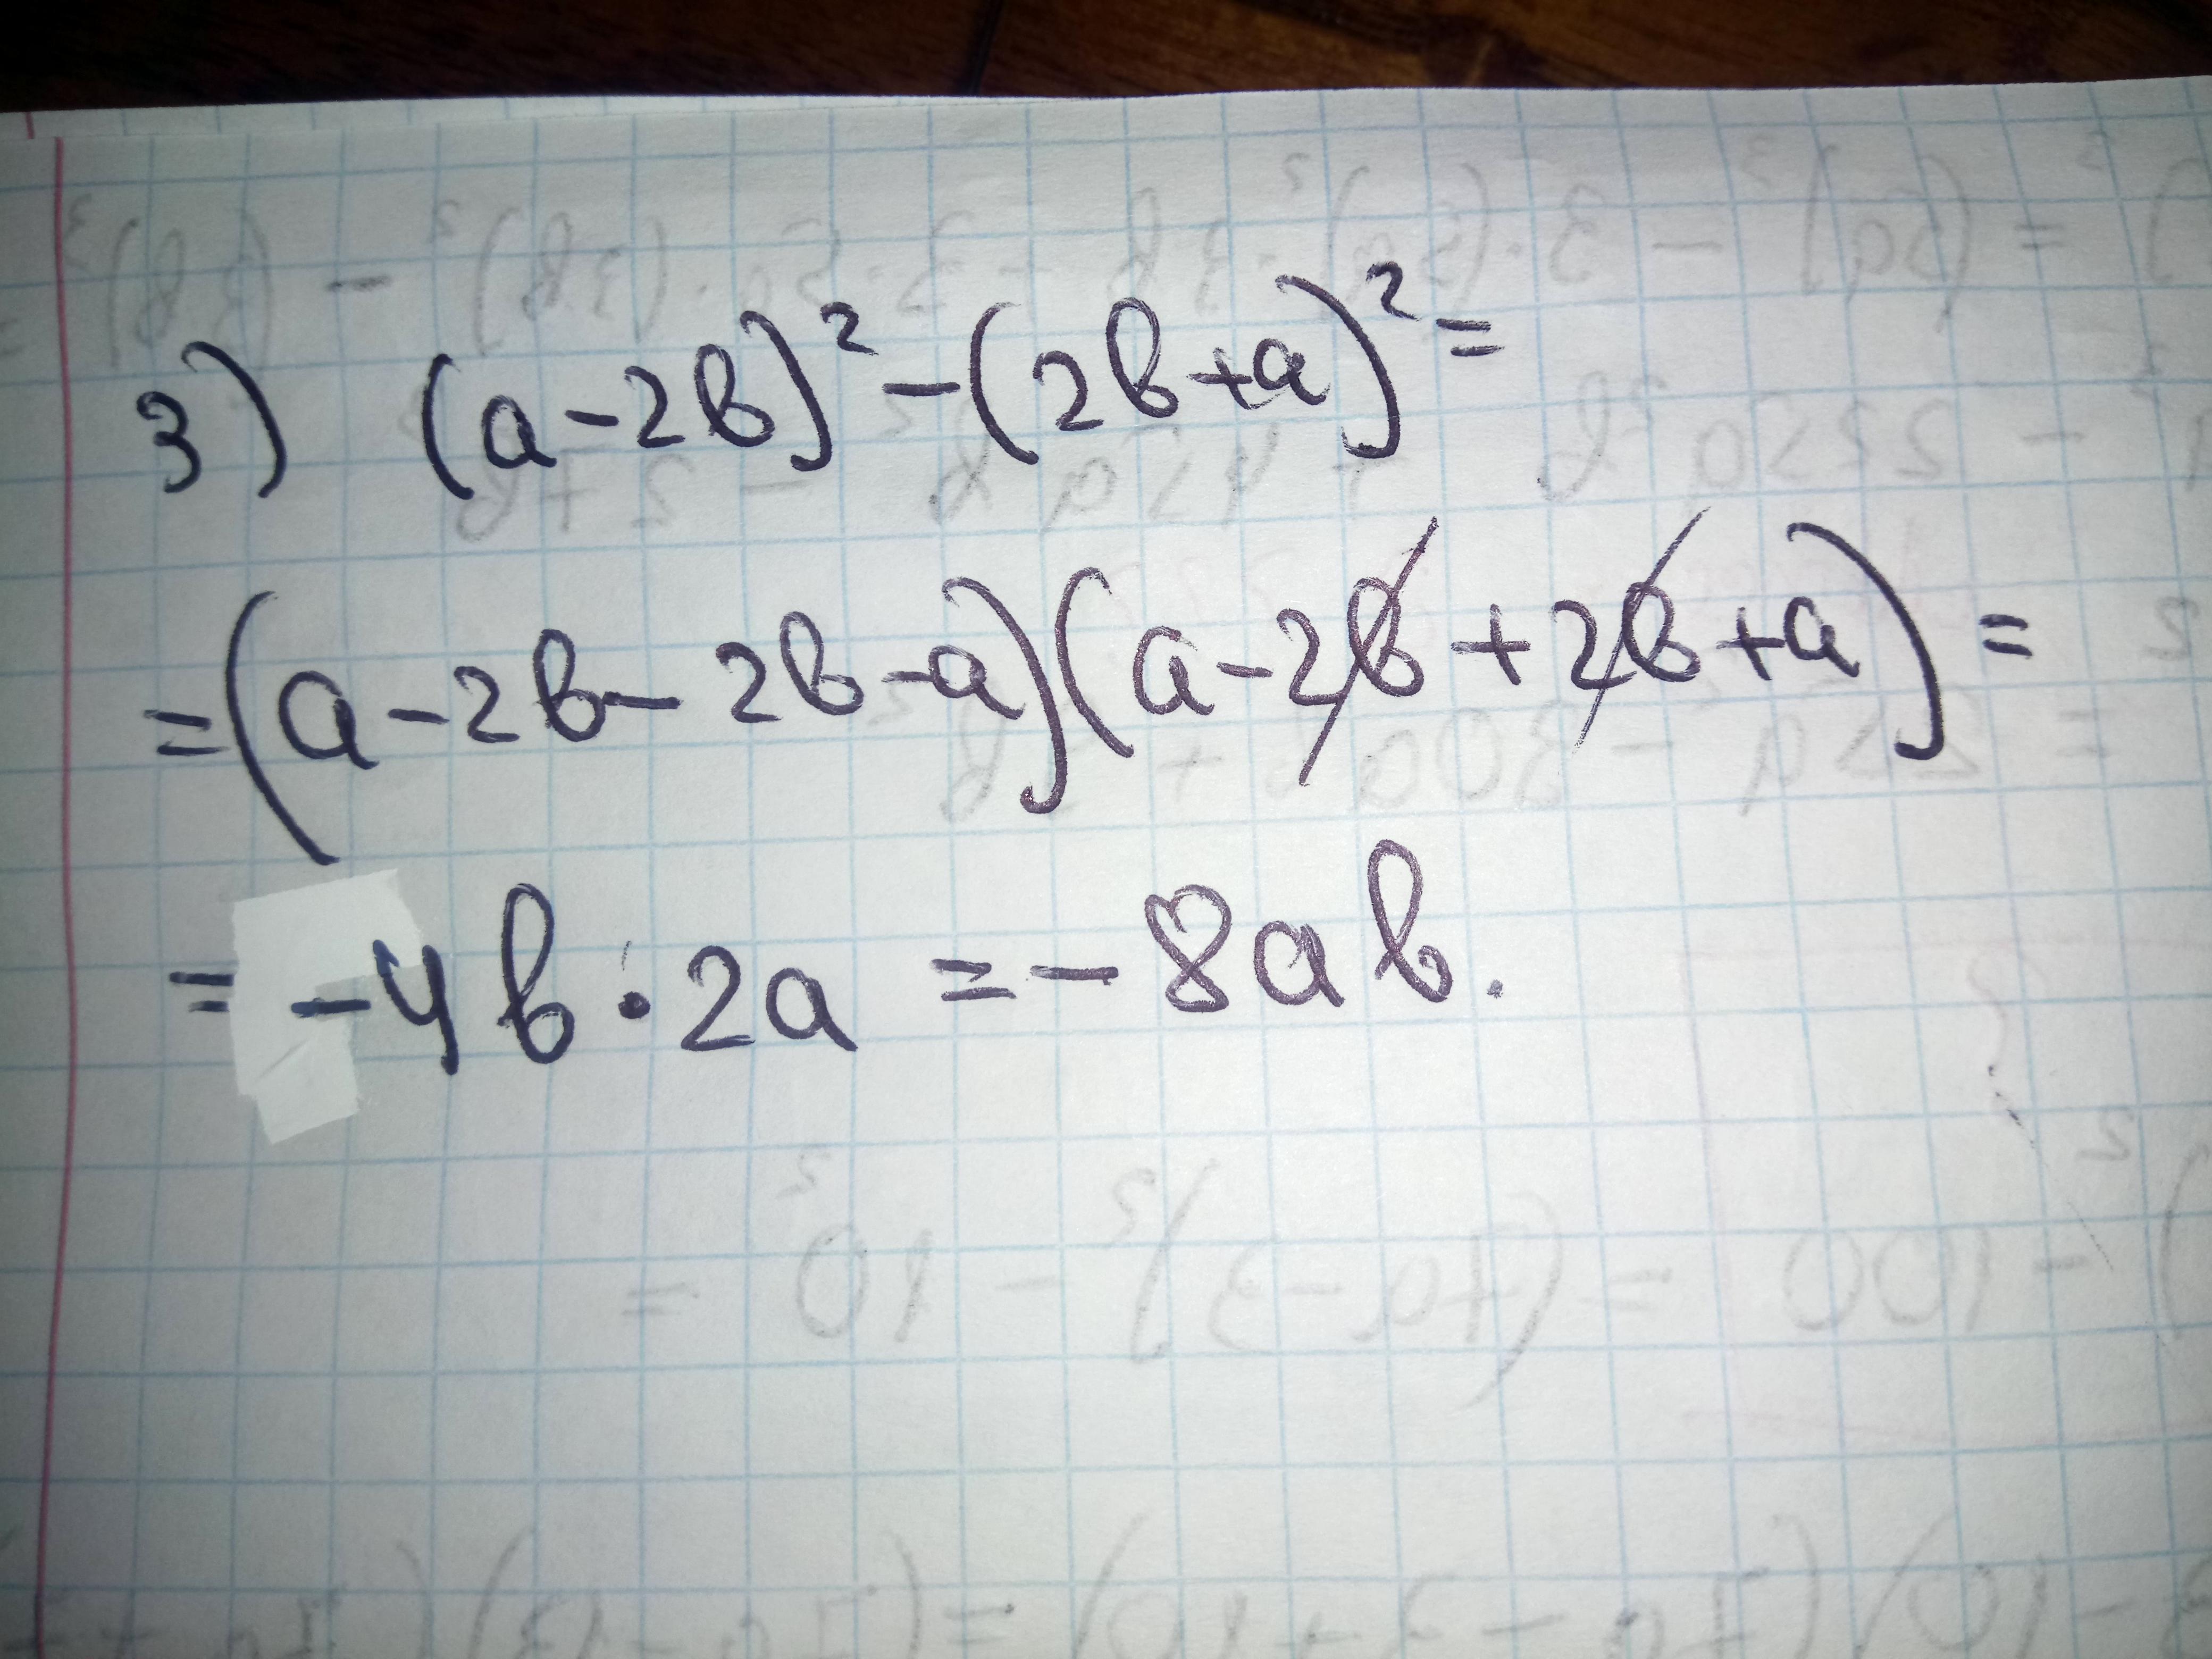 3) (a-2b)²-(2b+a)²=
=(a-2b-2b-a)(a-2b+2b+a)=
=-4b·2a=-8ab.